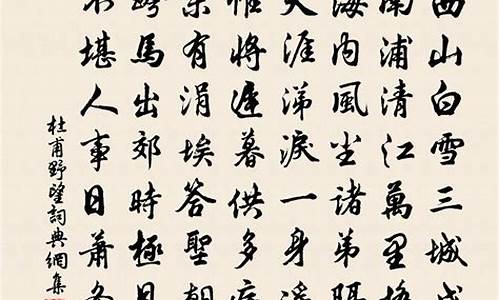 西山白雪三城戍
南浦清江萬里橋
海內風尘諸弟隔
天涯涕淚一身遙
惟將遲暮供多病
未有涓埃答聖朝
跨馬出郊時極
不堪人事日蕭條
杜甫野望詞典網集